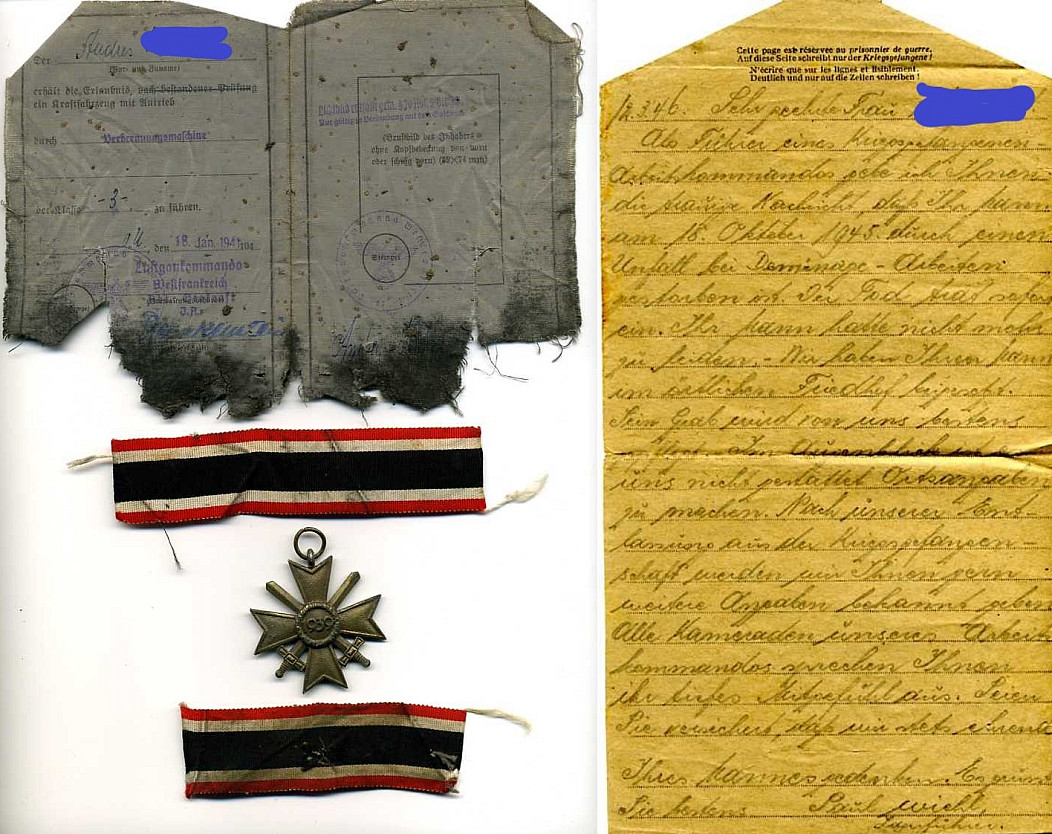 Der Andres
(Vor- und Zuname)
erhält die Erlaubnis, nach bestandener Prüfung
ein Kraftfahrzeug mit Antrieb
durch Verbrennungsmaschine
der Klasse -3- zu führen.
den 18. Jan. 194
Luftgaukommando
Westfrankreich
(Brustbild des Inhabers
ohne Kopfbedeckung von vorn
Stempel
1939
Cette page est réservée au prisonnier de guerre.
Auf diese Seite schreibt nur der Kriegsgefangene!
N'écrire que sur les lignes et lisiblement.
Deutlich und nur auf die Zeilen schreiben!
12.3.46. Sehr geehrte Frau
Als Führer eines Kriegsgefangenen-
Arbeitskommandos gebe ich Ihnen
die traurige Nachricht, daß Ihr Mann
am 18. Oktober 1945 durch einen
Unfall bei Deminage Arbeiten
gestorben ist. Der Tod trat sofort
ein. Ihr Mann hatte nicht mehr
zu leiden. - Wir haben Ihren Mann
im örtlichen Friedhof beigesetzt.
Sein Grab wird von uns bestens
Im Augenblick ist
uns nicht gestattet Ortsangaben
zu machen. Nach unserer Ent-
lassung aus der Kriegsgefangen-
schaft werden wir Ihnen gern
weitere Angaben bekannt geben
Alle Kameraden unseres Arbeits
kommandos sprechen Ihnen
ihr tiefes Mitgefühl aus. Seien
Sie versichert, daß wir stets
Ihres Mannes gedenken. Es grüßt
Sie bestens Paul